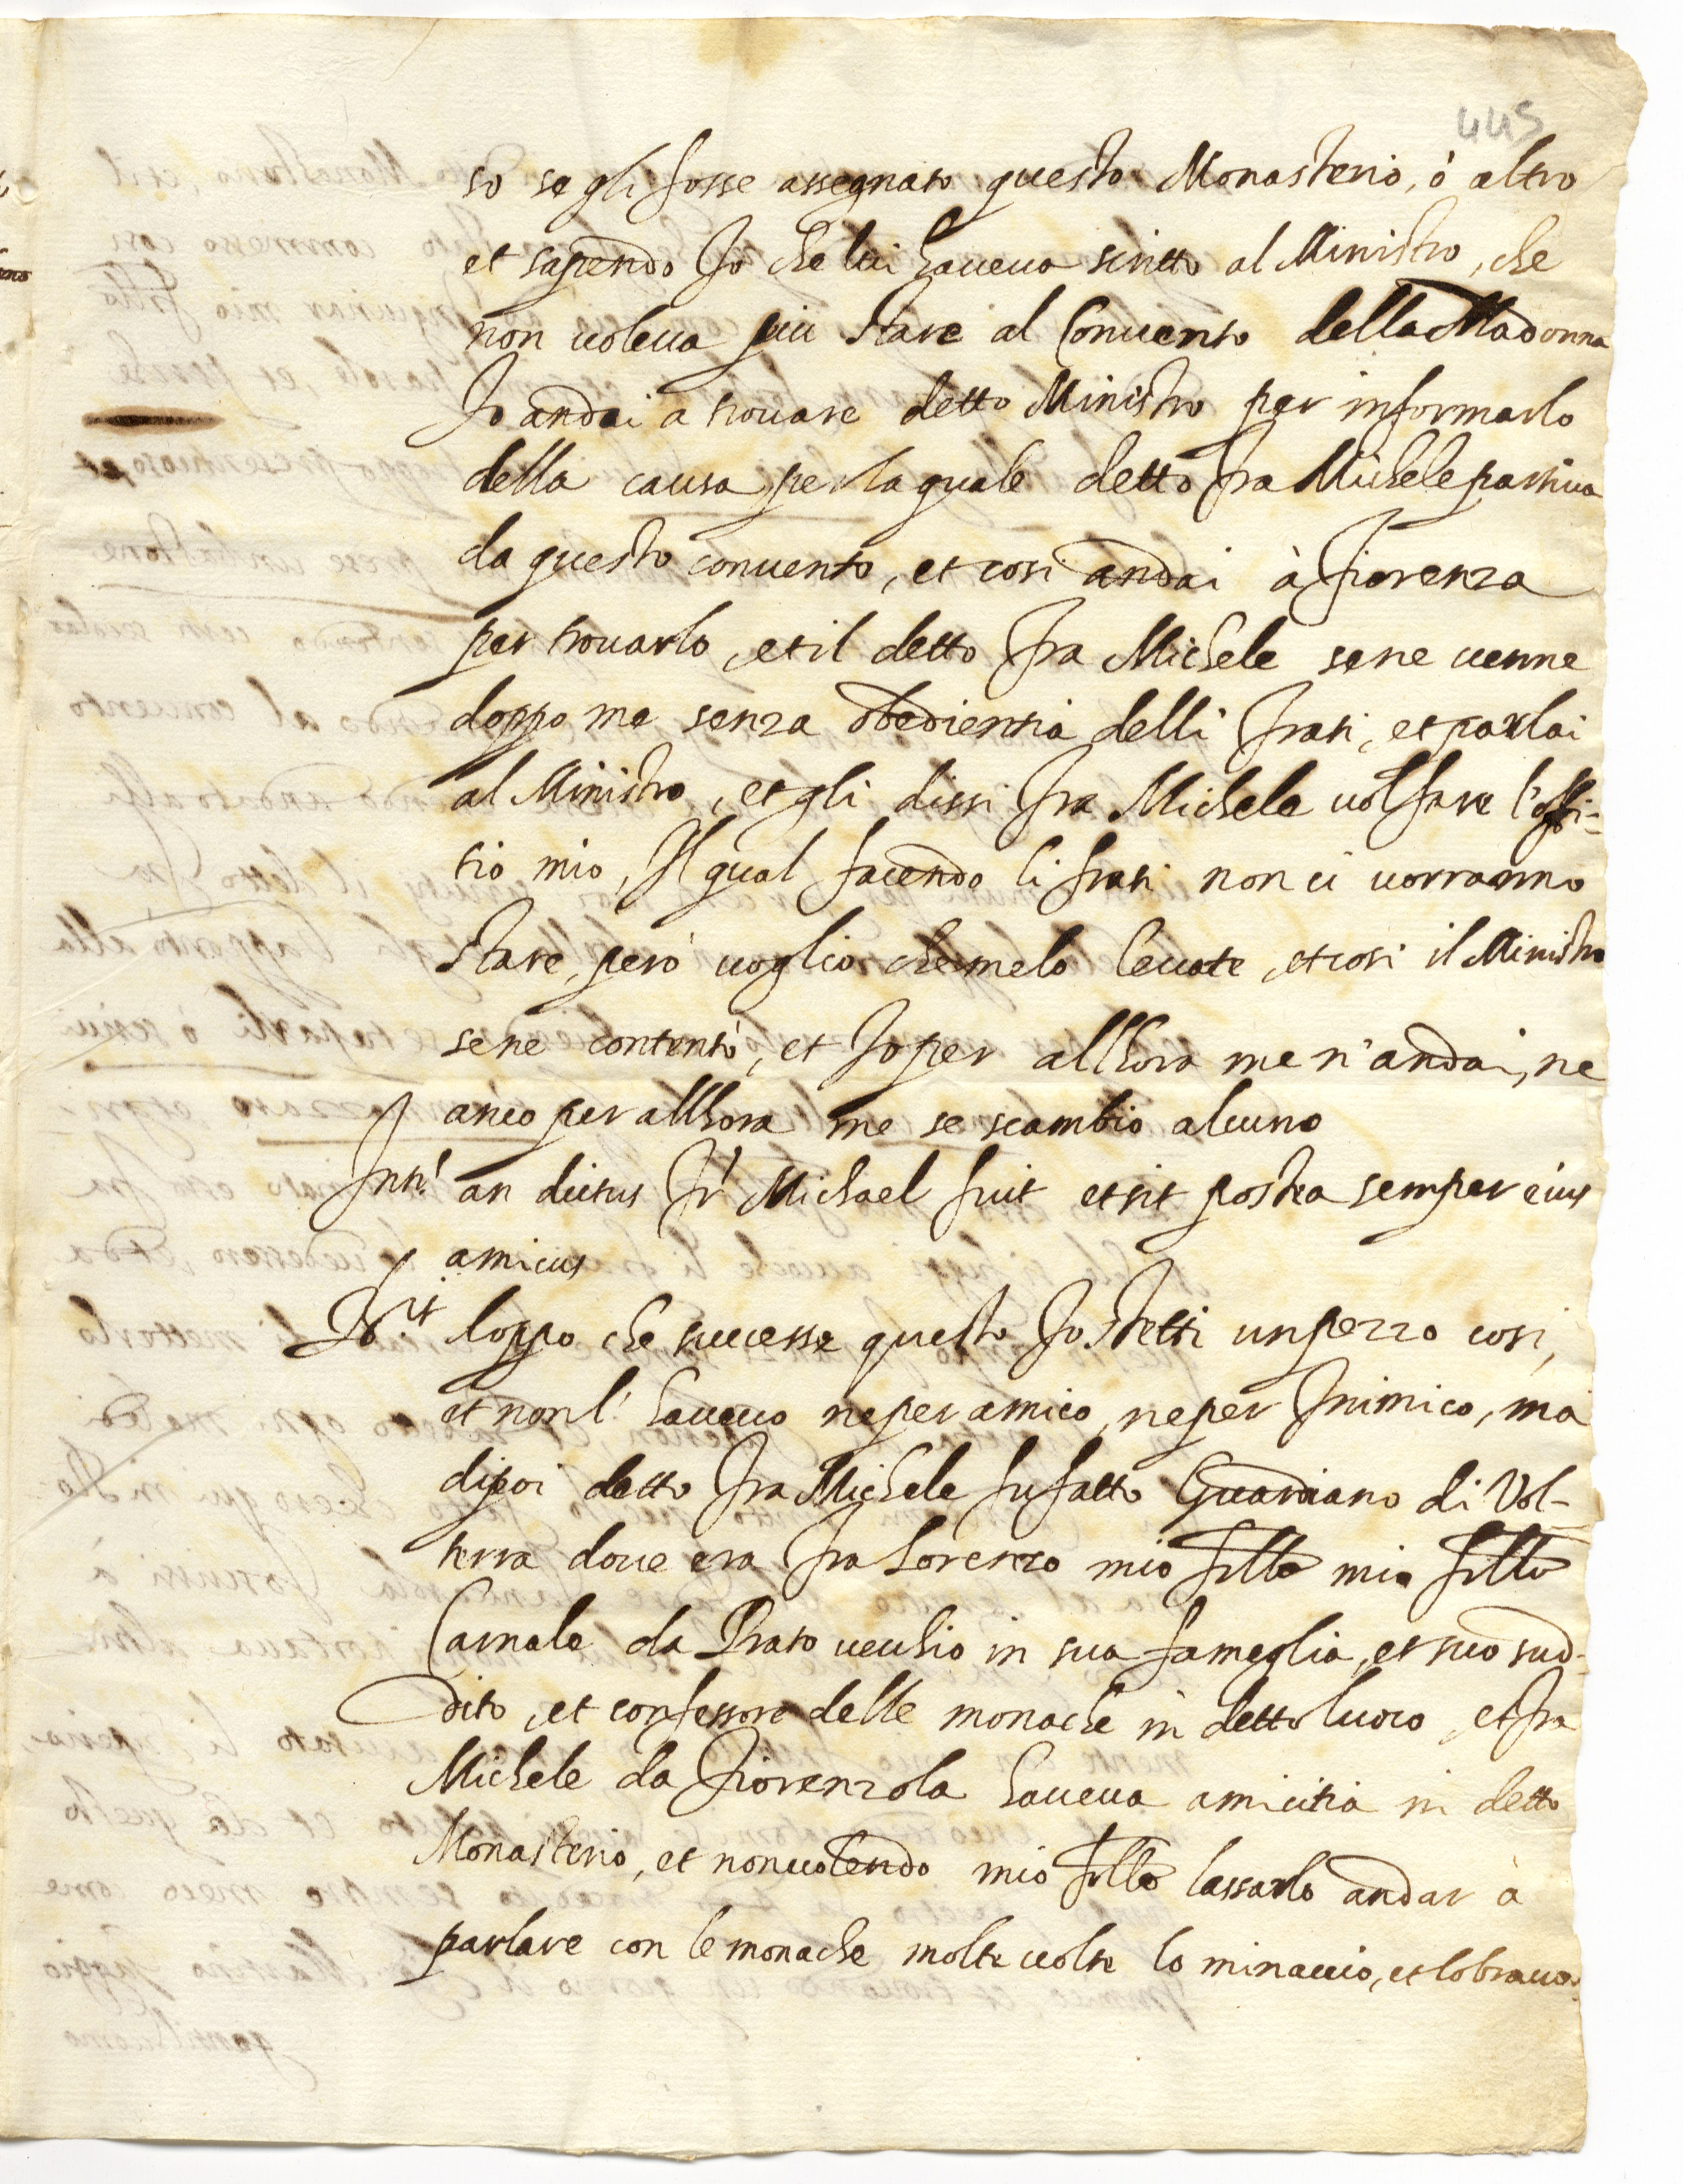 445
so se gli fosse assegnato questo Monasterio, ò altro
et sapendo Io che lui haueua scritto al Ministro, che
non uoleua piu stare al Conuento della Madonna
Io andai a trouare detto Ministro per informarlo
della causa per la quale detto fra Michele partiua
da questo conuento, et cosi andai à Fiorenza
per trouarlo, et il detto fra Michele sene uenne
doppo me senza obedientia delli frati, et parlai
al Ministro, et gli dissi fra Michele uol fare l'offi-
tio mio, Il qual facendo li frati non ci uorranno
stare, però uoglio che melo leuate, et cosi il Ministro
sene contentò, et Io per allhora me n'andai, ne
anco per allhora me se scambio alcuno
Intr. an dictus fr. Michael fuit et sit postea semper eius
amicus
Rit doppo che successe questo Io stetti un pezzo cosi,
et non l' haueuo ne per amico, ne per Inimico, ma
dipoi detto fra Michele fu fatto Guardiano di Vol-
terra doue era fra Lorenzo mio frllo mio frllo
Carnale da Prato uecchio in sua fameglia, et suo sud-
dito, et confessore delle monache in detto luoco, et fra
Michele da Fiorenzola haueua amicitia in detto
Monasterio, et non uolendo mio frllo lassarlo andar à
parlare con le monache molte uolte lo minaccio, et lo braua